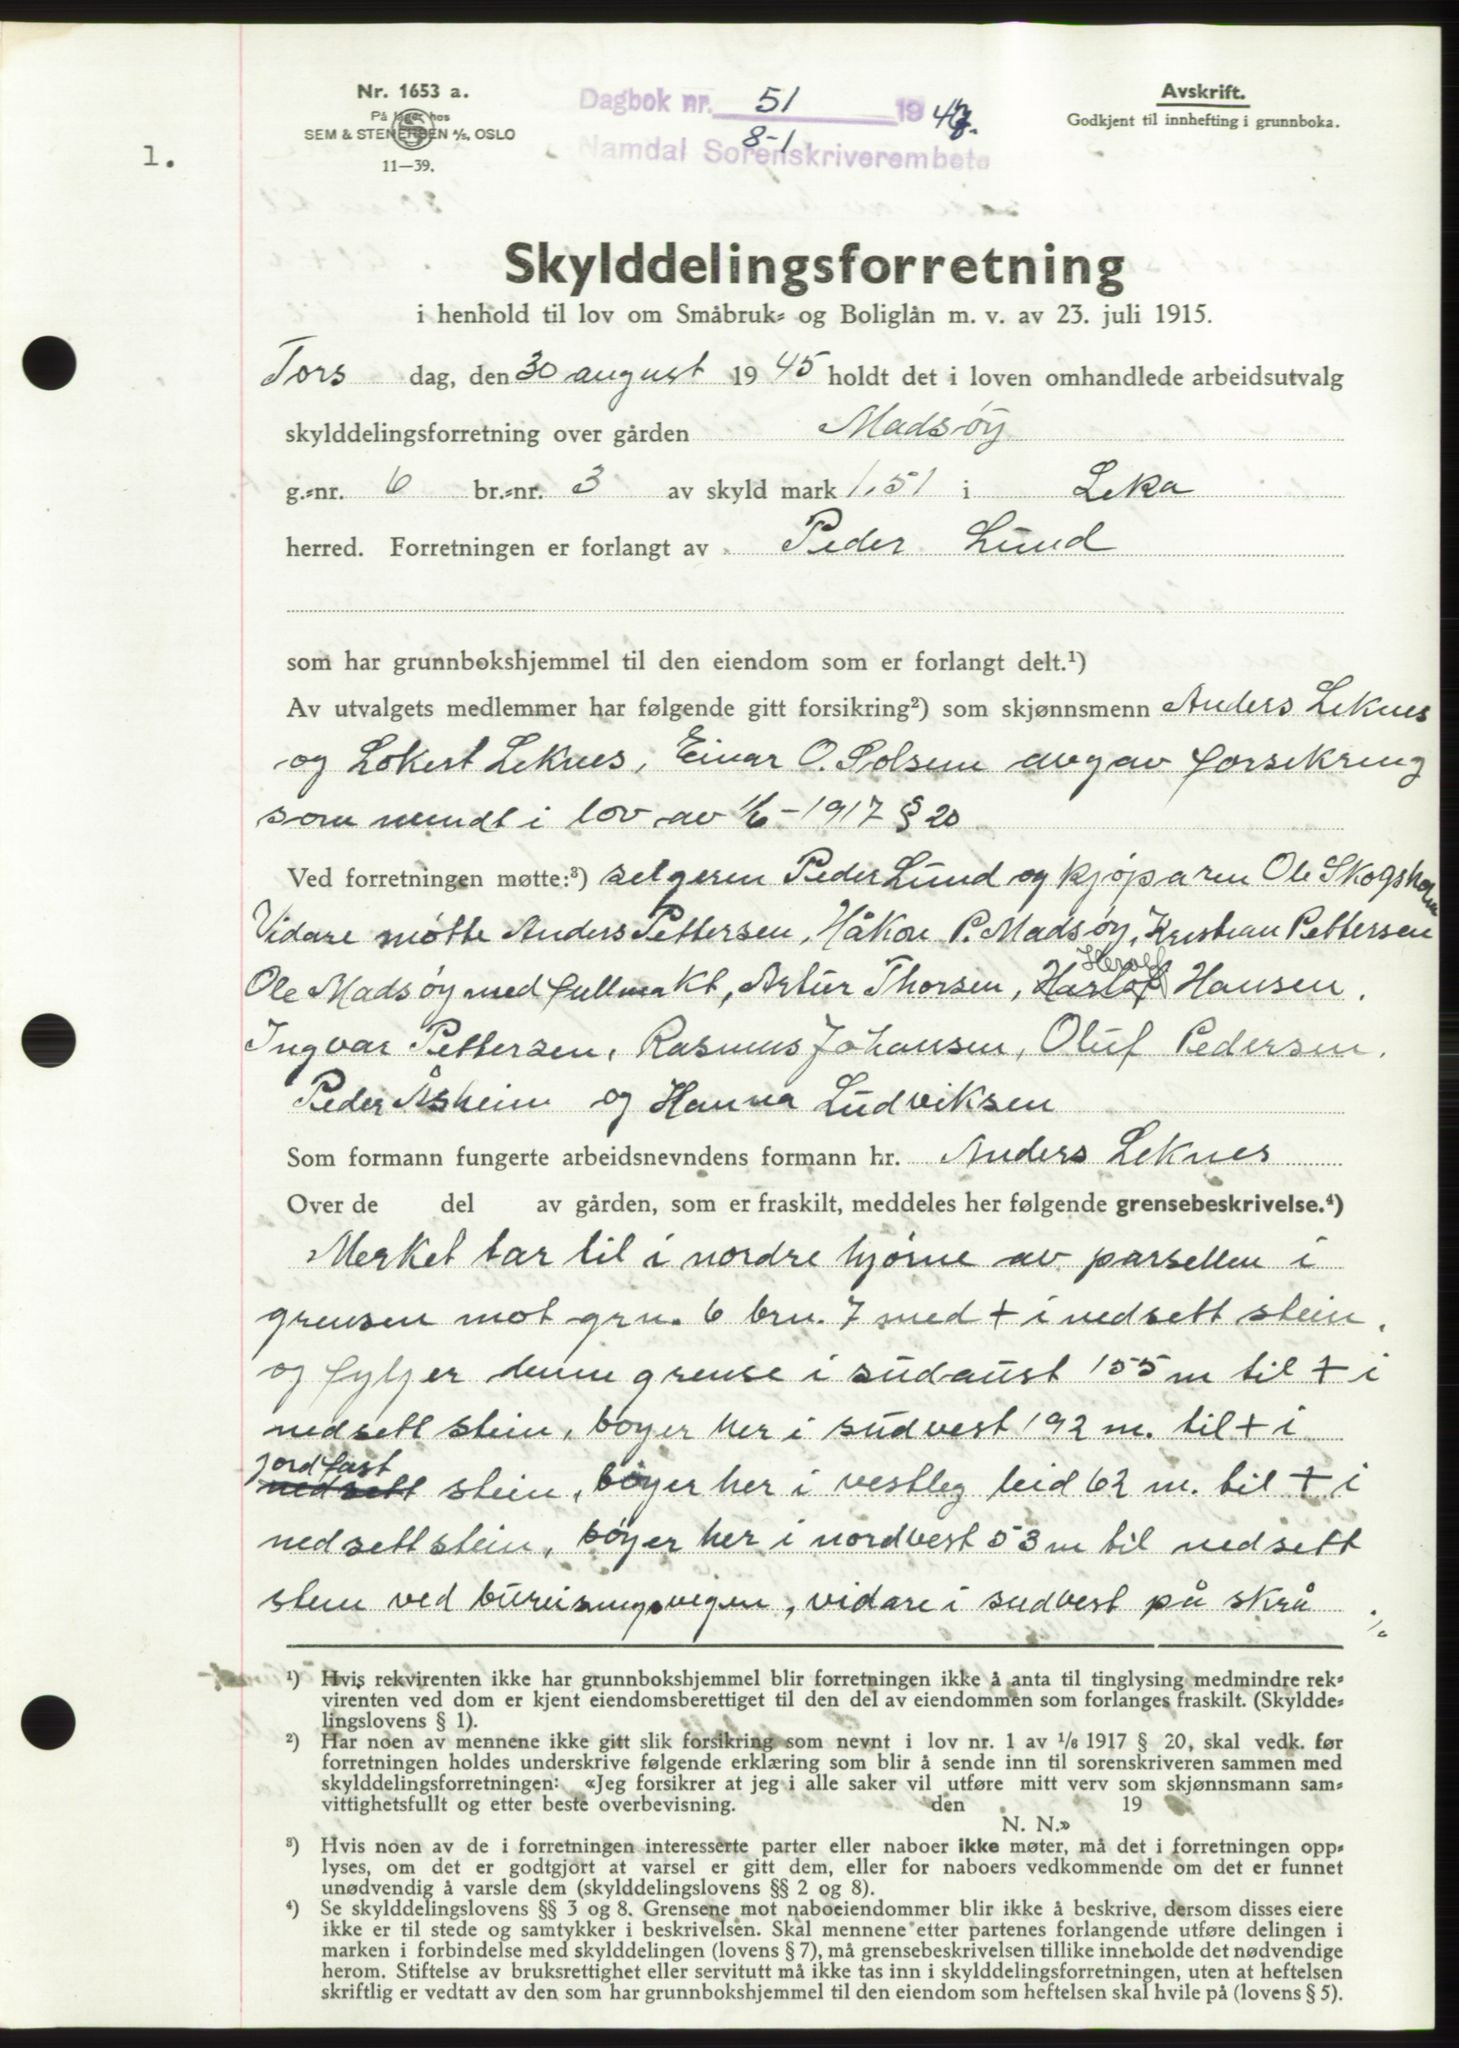 Nr. 1653 a.
På lager hos
SEM & STENERSEN A/S, OSLO
11—39.
Dagbok nr. 51 1947.
8-1
Namdal Sorenskriverembete
Avskrift.
Godkjent til innhefting i grunnboka.
1.
Skylddelingsforretning
i henhold til lov om Småbruk- og Boliglån m. v. av 23. juli 1915.
Tors dag, den 30 august 1945 holdt det i loven omhandlede arbeidsutvalg
skylddelingsforretning over gården Madsøy
g.-nr. 6 br.-nr. 3 av skyld mark 1,51 i Leka
herred. Forretningen er forlangt av Peder Lund
som har grunnbokshjemmel til den eiendom som er forlangt delt.¹)
Av utvalgets medlemmer har følgende gitt forsikring²) som skjønnsmenn Anders Leknes
og Lokert Leknes, Einar O. Solsem avgav forsikring
som nemdt i lov av 1/6-1917 § 20
Ved forretningen møtte:³) selgeren Peder Lund og kjøparen Ole Skogsholm
Vidare møtte Anders Pettersen, Håkon P. Madsøy, Kristian Pettersen
Ole Madsøy med fullmakt, Artur Thorsen, Herolf Hansen,
Ingvar Pettersen, Rasmus Johansen, Oluf Pedersen,
Peder Åsheim og Hanna Ludviksen
Som formann fungerte arbeidsnevndens formann hr. Anders Leknes
Over de del av gården, som er fraskilt, meddeles her følgende grensebeskrivelse.⁴)
Merket tar til i nordre hjørne av parsellen i
grensen mot grn. 6 brn. 7 med + i nedsett stein,
og fylgjer denne grense i sudaust 155 m til + i
nedsett stein, bøyer her i sudvest 192 m. til + i
jordfast nedsett stein, bøyer her i vestleg leid 62 m. til + i
nedsett stein, bøyer her i nordvest 53 m til nedsett
stein ved bureisingsvegen, vidare i sudvest på skrå ./.
¹) Hvis rekvirenten ikke har grunnbokshjemmel blir forretningen ikke å anta til tinglysing medmindre rek-
virenten ved dom er kjent eiendomsberettiget til den del av eiendommen som forlanges fraskilt. (Skyldde-
lingslovens § 1).
²) Har noen av mennene ikke gitt slik forsikring som nevnt i lov nr. 1 av 1/6 1917 § 20, skal vedk. før
forretningen holdes underskrive følgende erklæring som blir å sende inn til sorenskriveren sammen med
skylddelingsforretningen: «Jeg forsikrer at jeg i alle saker vil utføre mitt verv som skjønnsmann sam-
vittighetsfullt og etter beste overbevisning. den 19
N. N.»
³) Hvis noen av de i forretningen interesserte parter eller naboer ikke møter, må det i forretningen opp-
lyses, om det er godtgjort at varsel er gitt dem, eller for naboers vedkommende om det er funnet
unødvendig å varsle dem (skylddelingslovens §§ 2 og 8).
⁴) Se skylddelingslovens §§ 3 og 8. Grensene mot naboeiendommer blir ikke å beskrive, dersom disses eiere
ikke er til stede og samtykker i beskrivelsen. Skal mennene etter partenes forlangende utføre delingen i
marken i forbindelse med skylddelingen (lovens § 7), må grensebeskrivelsen tillike inneholde det nødvendige
herom. Stiftelse av bruksrettighet eller servitutt må ikke tas inn i skylddelingsforretningen, uten at heftelsen
skriftlig er vedtatt av den som har grunnbokshjemmel til den eiendom som heftelsen skal hvile på (lovens § 5).